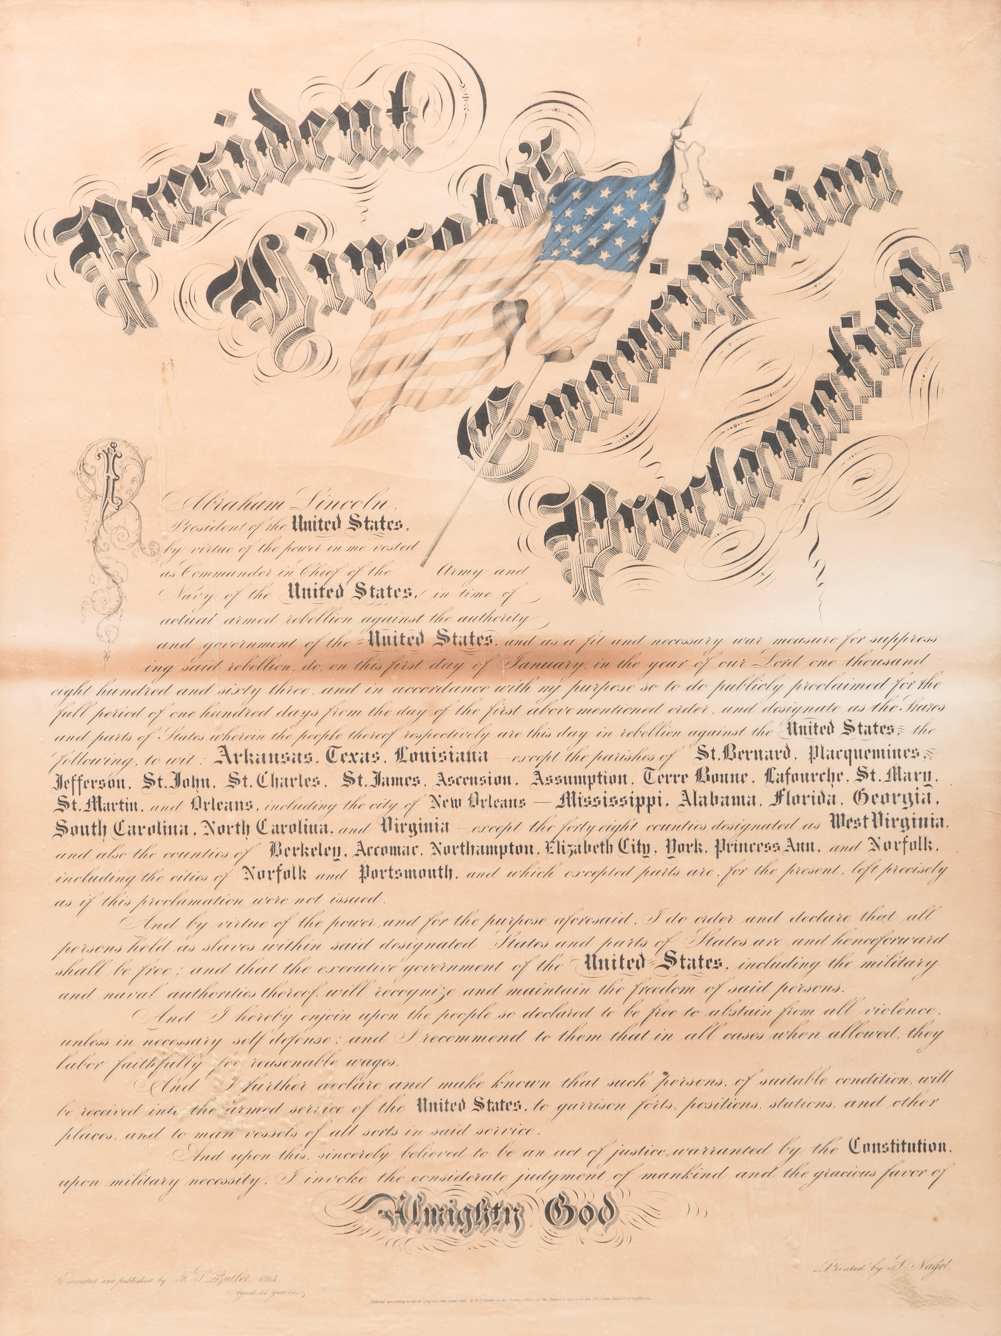 President
Lincoln's
Emancipation
Proclamation.
I Abraham Lincoln,
President of the United States,
by virtue of the power in me vested
as Commander in Chief of the Army and
Navy of the United States, in time of
actual armed rebellion against the authority
and government of the United States, and as a fit and necessary war measure for suppress
ing said rebellion, do, on this first day of January, in the year of our Lord one thousand
eight hundred and sixty three, and in accordance with my purpose so to do publicly proclaimed for the
full period of one hundred days from the day of the first above mentioned order, and designate as the States
and parts of States wherein the people thereof respectively are this day in rebellion against the United States, the
following, to wit; Arkansas, Texas, Louisiana — except the parishes of St. Bernard, Placquemines,
Jefferson, St. John, St. Charles, St. James, Ascension, Assumption, Terre Bonne, Lafourche, St. Mary,
St. Martin, and Orleans, including the city of New Orleans — Mississippi, Alabama, Florida, Georgia,
South Carolina, North Carolina, and Virginia — except the forty eight counties designated as West Virginia,
and also the counties of Berkeley, Accomac, Northampton, Elizabeth City, York, Princess Ann, and Norfolk,
including the cities of Norfolk and Portsmouth, and which excepted parts are, for the present, left precisely
as if this proclamation were not issued.
And by virtue of the power, and for the purpose aforesaid, I do order and declare that all
persons held as slaves within said designated States and parts of States are and henceforward
shall be free; and that the executive government of the United States, including the military
and naval authorities thereof, will recognize and maintain the freedom of said persons.
And I hereby enjoin upon the people so declared to be free to abstain from all violence,
unless in necessary self defense; and I recommend to them that in all cases when allowed, they
labor faithfully for reasonable wages.
And I further declare and make known that such persons, of suitable condition, will
be received into the armed service of the United States, to garrison forts, positions, stations, and other
places, and to man vessels of all sorts in said service.
And upon this, sincerely believed to be an act of justice, warranted by the Constitution,
upon military necessity, I invoke the considerate judgment of mankind and the gracious favor of
Almighty God
Executed and published by F. S. Butler, 1864.
Printed by L. Nagel.